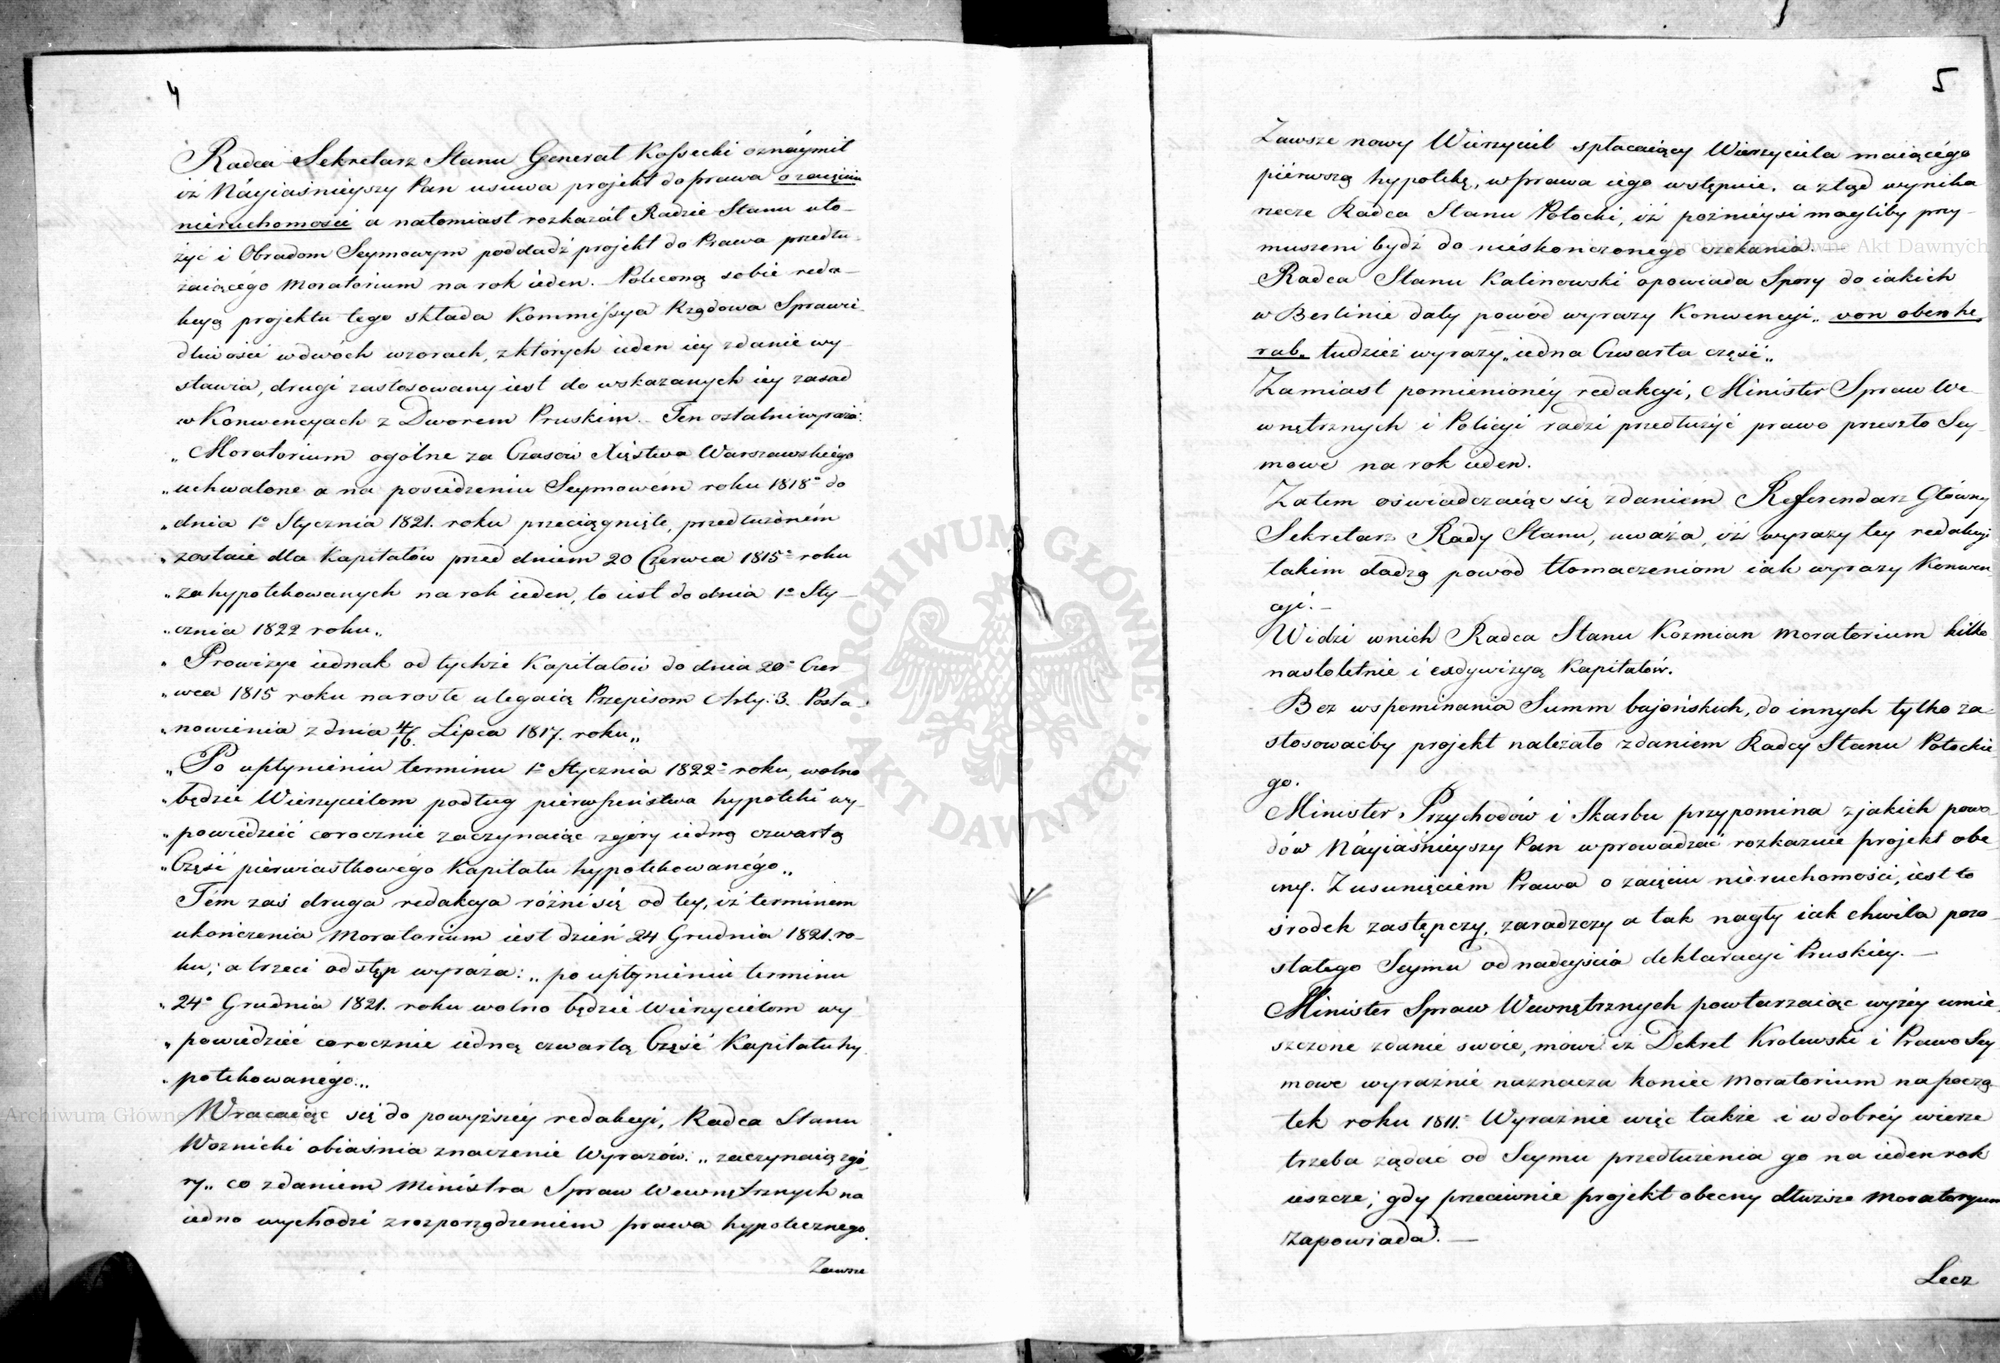 4
Radca Sekretarz Stanu Generał Kossecki oznáymił
iż Náyiaśnieyszy Pan usuwa projekt do prawa o zaięciu
nieruchomości a natomiast rozkazáł Radzie Stanu uło-
żyć i Obradom Seymowym poddadź projekt do Prawa przedłu-
żaiącégo Moratorium na rok ieden. Poleconą sobie reda-
kcyą projektu tego składa Kommissya Rządowa Sprawie-
dliwości w dwóch wzorach, z których ieden iey zdanie wy-
stawia, drugi zastosowany iest do wskazanych iey zasad
w Konwencyach z Dworem Pruskim. Ten ostatni wyraża:
„Moratorium ogólne za Czasów Xięstwa Warszawskiego
„uchwalone a na posiedzeniu Seymowém roku 1818º do
„dnia 1º Stycznia 1821. roku przeciągnięte, przedłużoném
„zostaie dla Kapitałów przed dniem 20 Czerwca 1815º roku
„zahypotekowanych na rok ieden, to iest do dnia 1º Sty-
„cznia 1822 roku„
„Prowizye iednak od tychże Kapitałów do dnia 20º Czer
„wca 1815 roku narosłe ulegaią Przepisom Arty: 3. Posta-
„nowienia z dnia 4/16. Lipca 1817. roku„
„Po upłynieniu terminu 1º Stycznia 1822º roku, wolno
„będzie Wierzycielom podług pierwszeństwa hypoteki wy-
„powiedzieć corocznie zaczynaiąc zgóry iedną czwartą
„Część pierwiastkowégo Kapitału hypotekowanégo„
Tém zaś druga redakcya różni się od tey, iż terminem
ukończenia Moratorium iest dzień 24 Grudnia 1821. ro-
ku; a trzeci odstęp wyraża: „po upłynieniu terminu
„24º Grudnia 1821. roku wolno będzie Wierzycielom wy-
„powiedzieć corocznie iedną czwartą Część Kapitału hy-
„potekowanégo„
Wracaiąc się do powyższéy redakcyi, Radca Stanu
Woznicki obiaśnia znaczenie Wyrazów: „zaczynaiąc zgó-
ry„ co zdaniem Ministra Spraw Wewnętrznych na
iedno wychodzi z rozporządzeniem prawa hypotecznego.
Zawsze
5
Zawsze nowy Wierzyciel spłacaiący Wierzyciela maiącégo
piérwszą hypotekę, w prawa iego wstępuie, a ztąd wynika
rzecze Radca Stanu Potocki, iż poźnieysi mogliby przy-
muszeni bydź do nieskończonégo czekania.
Radca Stanu Kalinowski opowiada Spory do iakich
w Berlinie dały powód wyrazy Konwencyi „von oben he-
rab„ tudzież wyrazy „iedna Czwarta część„
Zamiast pomienionéy redakcyi, Minister Spraw We-
wnętrznych i Policyi radzi przedłużyć prawo przeszło Sey-
mowe na rok ieden.
Zatem oświadczaiąc się zdaniem Referendarz Główny
Sekretarz Rady Stanu, uważa, iż wyrazy tey redakcyi
takim dadzą powód tłomaczeniom iak wyrazy Konwen
cyi.-
Widzi w nich Radca Stanu Kozmian Moratorium kilko
nastoletnie i exdywizyą Kapitałów.
Bez wspominania Summ bajońskich, do innych tylko za-
stosowaćby projekt należało zdaniem Radcy Stanu Potockie-
go.
Minister Przychodów i Skarbu przypomina z jakich powo-
dów Náyiaśnieyszy Pan wprowadzać rozkazuie projekt obe-
cny. Z usunięciem Prawa o zaięciu nieruchomości, iest to
środek zastępczy, zaradzczy a tak nagły iak chwila pozo-
stałego Seymu od nadeyścia deklaracyi Pruskiey.-
Minister Spraw Wewnętrznych powtarzaiąc wyżéy umie-
szczone zdanie swoie, mówi iż Dekret Krolewski i Prawo Sey-
mowe wyraźnie naznacza koniec Moratorium na począ-
tek roku 1811. Wyraźnie więc także i w dobréy wierze
trzeba żądać od Seymu przedłużenia go na ieden rok
ieszcze; gdy przeciwnie projekt obecny dłuższe Moratoryum
zapowiada.-
Lecz
ARCHIWUM GŁÓWNE AKT DAWNYCH
Archiwum Główne Akt Dawnych
Archiwum Główne